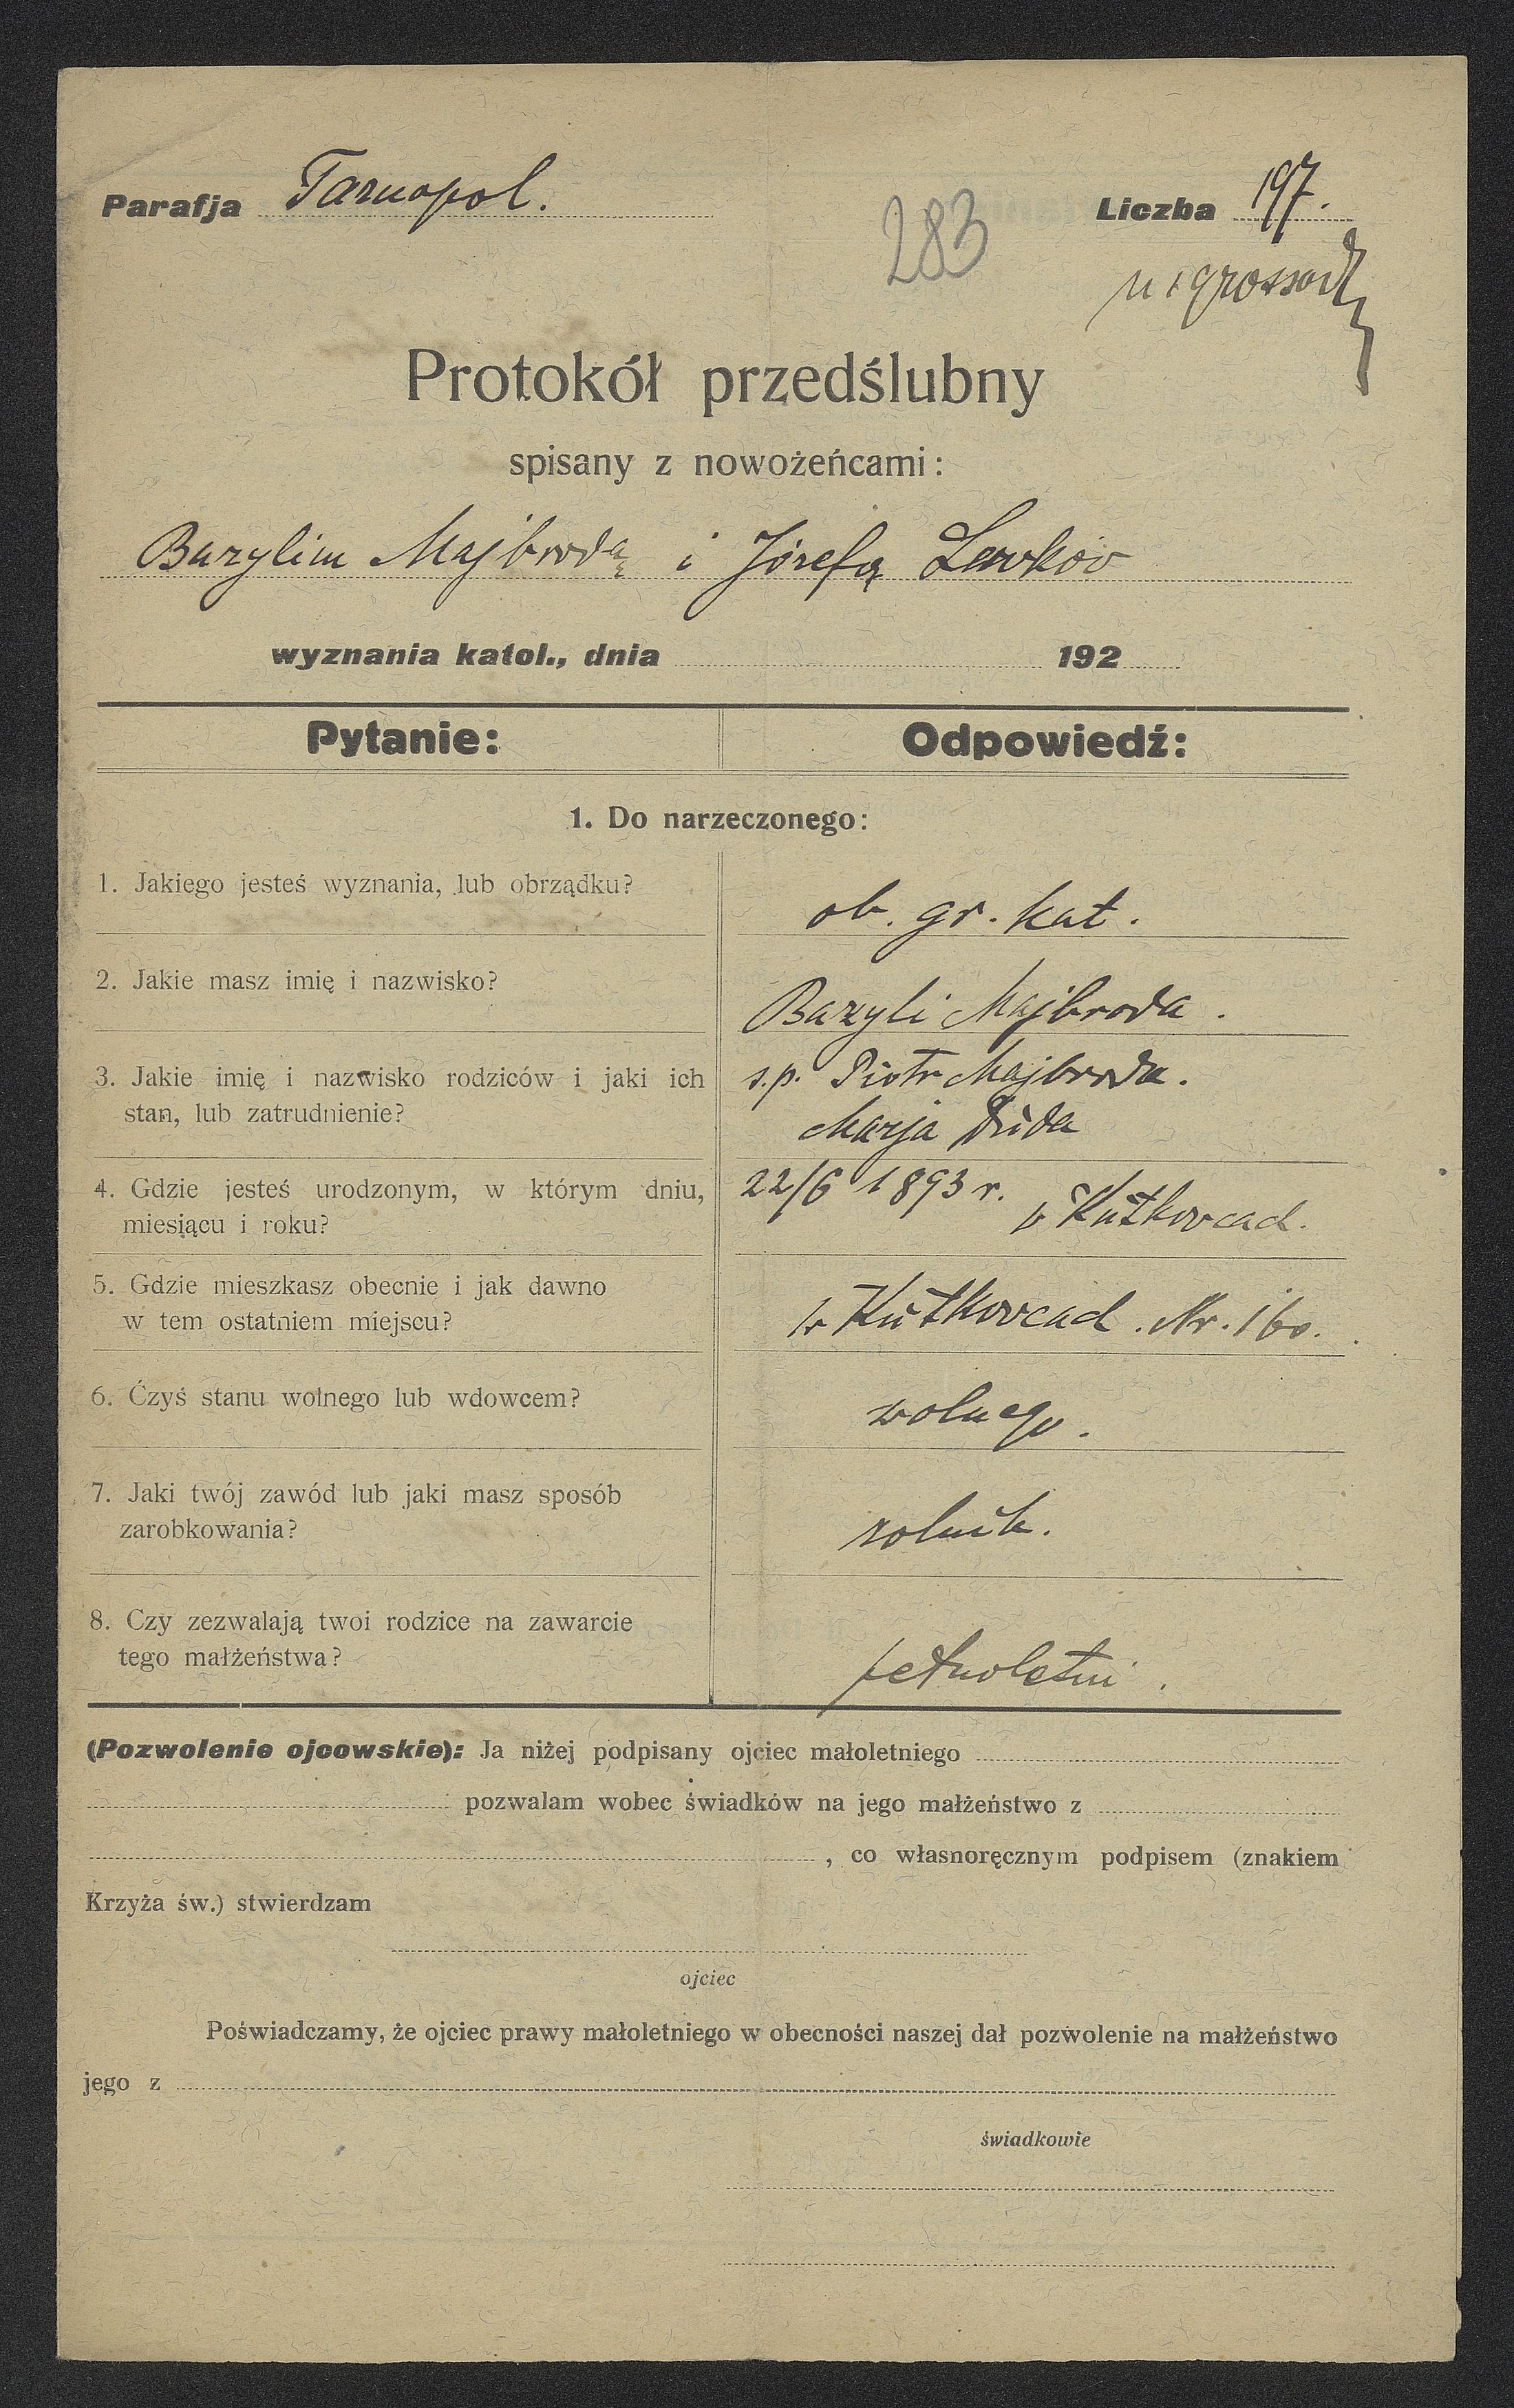 Parafja Tarnopol.
Liczba 197.
283
Protokół przedślubny
spisany z nowożeńcami:
Bazylim Majbrodą i Józefą Lewków
wyznania katol., dnia 192
Pytanie: Odpowiedź:
1. Do narzeczonego:
1. Jakiego jesteś wyznania, lub obrządku?
ob. gr. kat.
2. Jakie masz imię i nazwisko?
Bazyli Majbroda.
3. Jakie imię i nazwisko rodziców i jaki ich
stan, lub zatrudnienie?
s.p. Piotr Majbroda.
Marja Duda
4. Gdzie jesteś urodzonym, w którym dniu,
miesiącu i roku?
22/6 1893 r.
w Kutkowcach.
5. Gdzie mieszkasz obecnie i jak dawno
w tem ostatniem miejscu?
w Kutkowcach. Nr. 160.
6. Czyś stanu wolnego lub wdowcem?
wolnego.
7. Jaki twój zawód lub jaki masz sposób
zarobkowania?
rolnik.
8. Czy zezwalają twoi rodzice na zawarcie
tego małżeństwa?
pełnoletni.
(Pozwolenie ojcowskie): Ja niżej podpisany ojciec małoletniego
pozwalam wobec świadków na jego małżeństwo z
, co własnoręcznym podpisem (znakiem
Krzyża św.) stwierdzam
ojciec
Poświadczamy, że ojciec prawy małoletniego w obecności naszej dał pozwolenie na małżeństwo
jego z
świadkowie